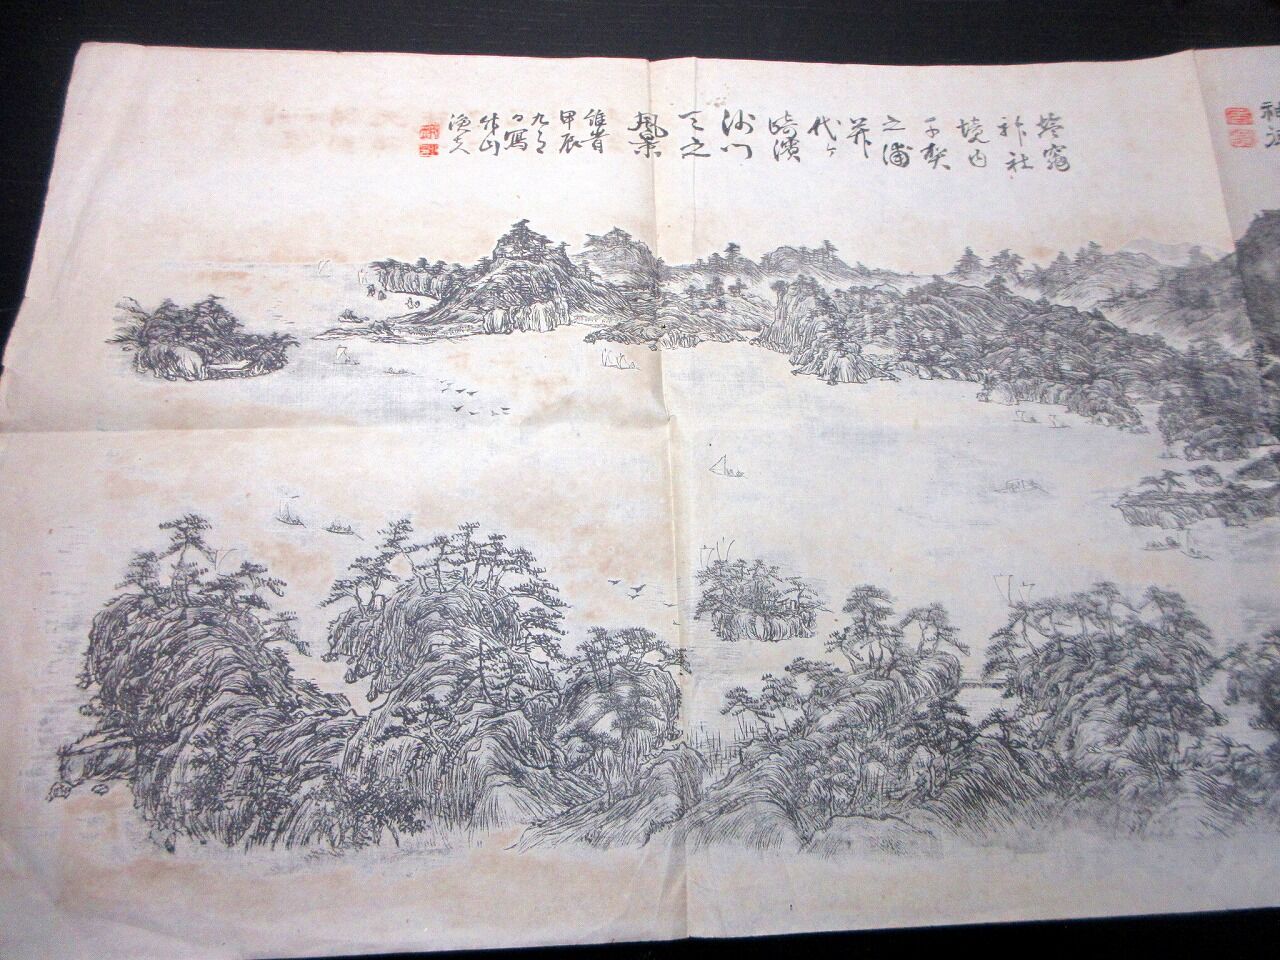 塩竈
神社
境内
千賀
之浦
并
代ヶ
崎濱
沙門
天之
風景
維時
甲辰
九月
日寫
竹山
漁夫